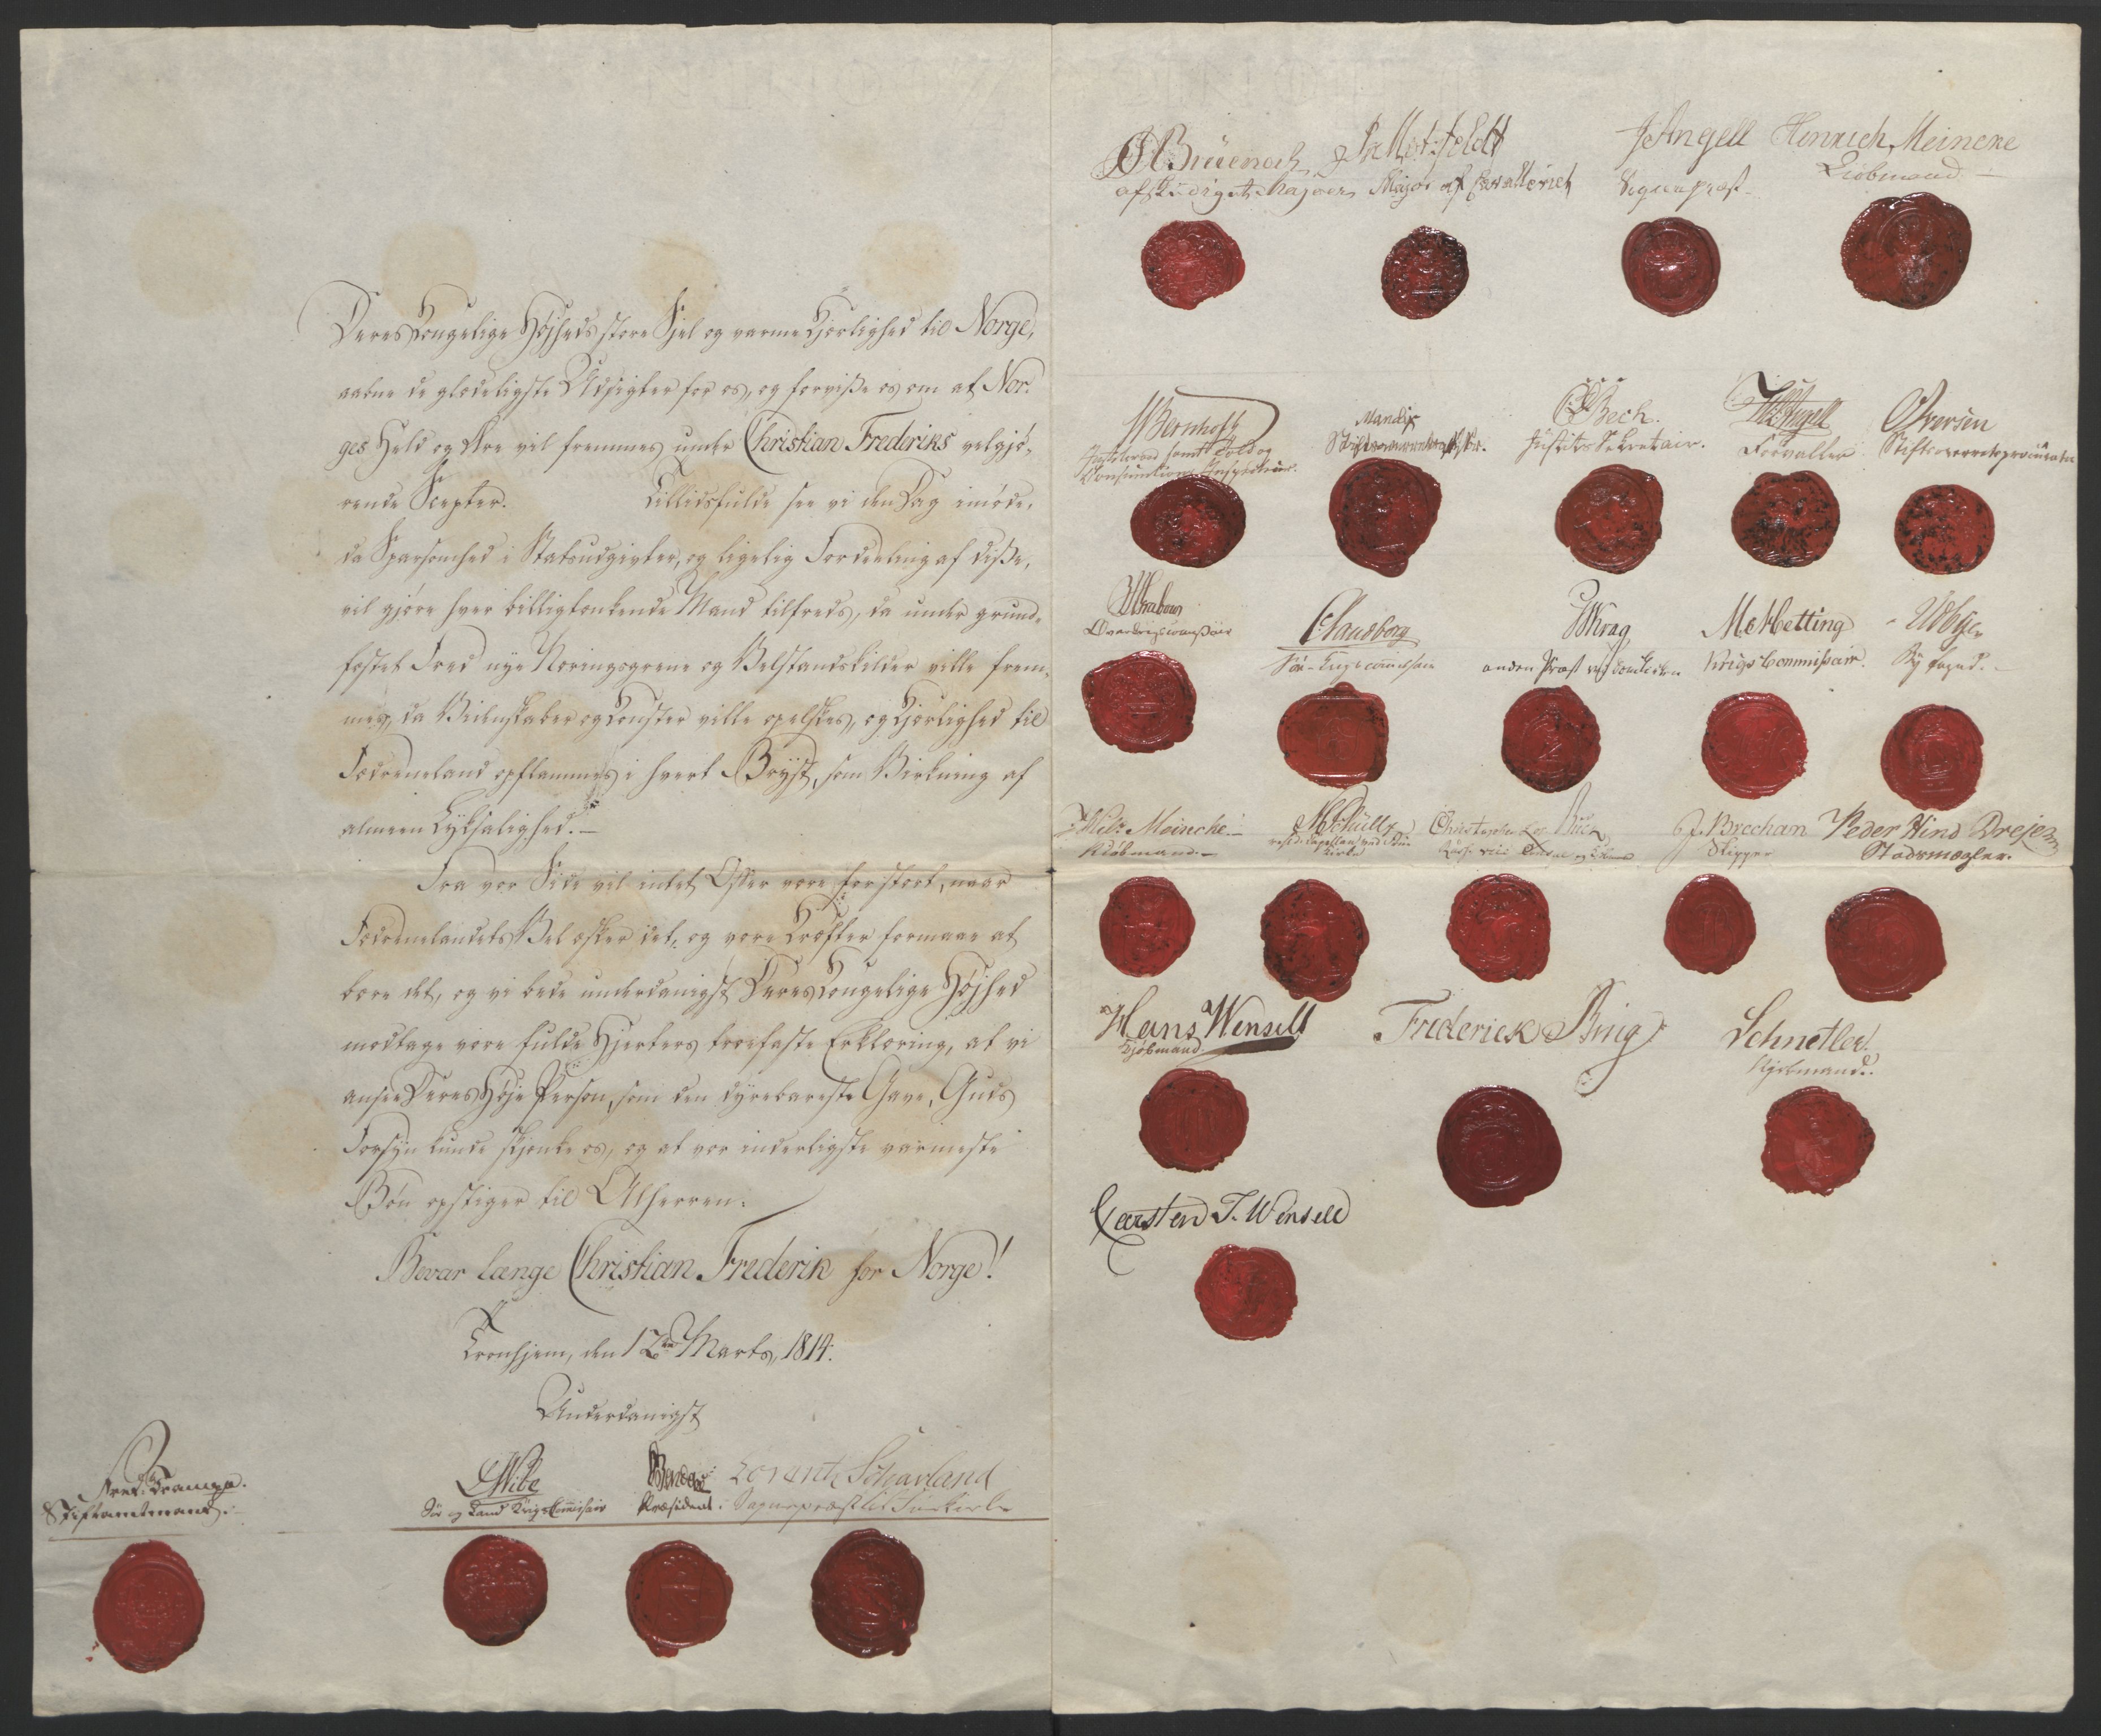 Deres Kongelige Højheds store Sjel og varme Kjerlighed til Norge,
aabne de gladeligste Udsigter for os, og forvisse os om at Nor-
ges Held og Ære vil fremmes under Christian Frederiks velgjø-
rende Scepter. Tillidsfulde see vi den Dag imøde,
da Sparsomhed i Statsudgivter, og ligelig Fordeeling af disse,
vil gjøre hver billigtænkende Mand tilfreds, da under grund-
fæstet Fred nye Næringsgrene og Velstandskilder ville frem-
mes, da Videnskaber og Konster ville opelskes, og Kjærlighed til
Fædreneland opflammes i hvert Bryst, som Virkning af
almeen Lyksalighed. —
Fra vor Side vil intet Offer være for stort, naar
Fædrenelandets Vel æsker det, og vore Kræfter formaae at
bære det, og vi bede underdanigst Deres Kongelige Højhed
modtage vore fulde Hjerters troefaste Erklæring, at vi
ansee Deres Høje Person, som den dyrebareste Gave, Guds
Forsyn kunde skjenke os, og at vor inderligste varmeste
Bøn opstiger til Alherren:
Bevar længe Christian Frederik for Norge!
Tronhjem, den 12te Marts, 1814.
Underdanigst
Fred: Trampe.
Stiftamtmand.
Wibe
Sø og Land Krigs Commissair
Præsident.
Lorentz
Sognepræst til
afskediget Major
Major af Cavalleriet
J Angell
Sognepræst
Hinrich Meincke
Kiøbmand —
Bernhoft
samt Told og
Consumtions Inspecteur.
Bech.
Justits Sekretair.
Angell
Forvalter
Iversen
Stiftsoverretsprocurator
Overkrigscommissair
Klausborg
Sø-Krigscommissair
Krag
anden Præst ved Domkirken
Krigs Commissair.
By foged.
Meincke. —
Kiøbmand. —
Schultz
Christopher
J. Brechan
Skipper
Peder Hind Drejer
Stadsmægler.
Hans Wensell
Kjøbmand
Frederick
Schnetler.
Kjøbmand.
Carsten T. Wensell